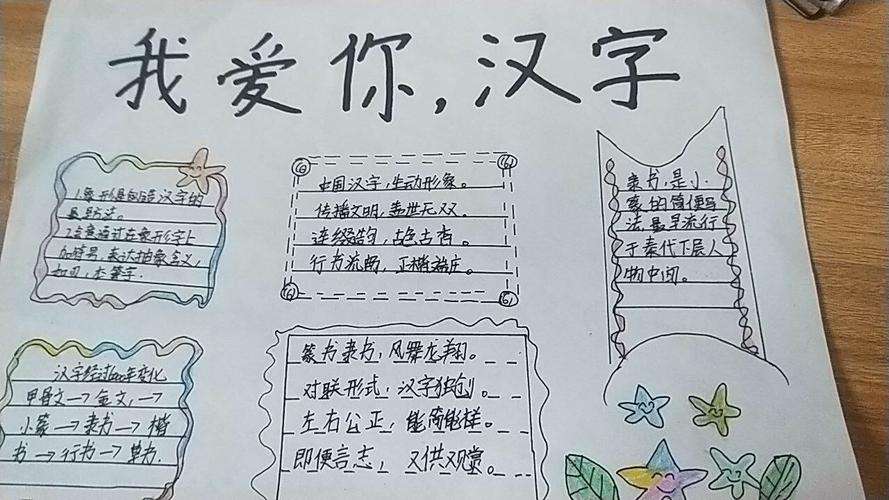 我爱你,汉字
1象形是创造汉字的
最早方法。
2会意通过在象形字上
加符号,表达抽象含义,
如刃,本等字.
中国汉字,生动形象。
传播文明,盖世无双。
连缀韵,古色古香。
行书流畅,正楷端庄。
隶书,是小
篆的简便写
法最早流行
于秦代下层人
物中间。
汉字经过年变化
甲骨文→金文,→
小篆→隶书→楷
书→行书→草书.
篆书隶书,风舞龙翔。
对联形式,汉字独创。
左右公正,能简能样。
即便言志,又供观赏。